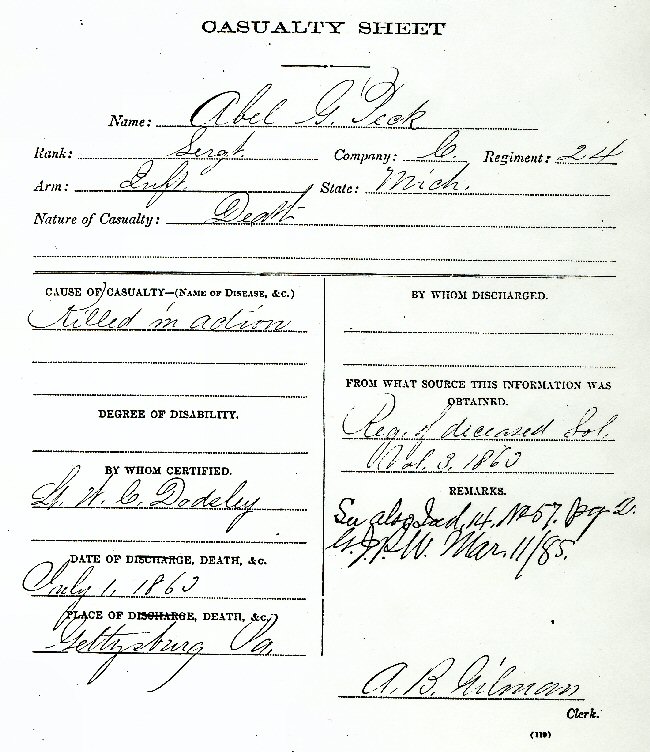 CASUALTY SHEET
Name: Abel G. Peck
Rank: Sergt. Company: C. Regiment: 24
Arm: Inft. State: Mich.
Nature of Casualty: Death
CAUSE OF CASUALTY—(NAME OF DISEASE, &C.)
Killed in action
DEGREE OF DISABILITY.
BY WHOM CERTIFIED.
Lt. W. C. Dodsley
DATE OF DISCHARGE, DEATH, &C.
July 1, 1863
PLACE OF DISCHARGE, DEATH, &C.
Gettysburg Pa.
BY WHOM DISCHARGED.
FROM WHAT SOURCE THIS INFORMATION WAS
OBTAINED.
Reg. of deceased Sol.
Vol. 3. 1863
REMARKS.
See also 14. No 57. pg 2.
Mar. 11/85.
A. B. Gilman
Clerk.
(119)